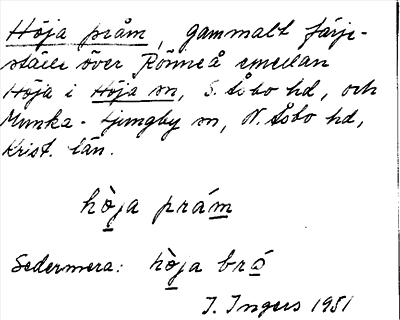 Höja pråm, gammalt färje-
ställe över Rönneå emellan
Höja i Höja sn, S. Åsbo hd, och
Munka-Ljungby sn, N. Åsbo hd,
Krist. län.
hò̲ja prám̲
Sedermera: hò̲ja brá̲
I. Ingers 1951